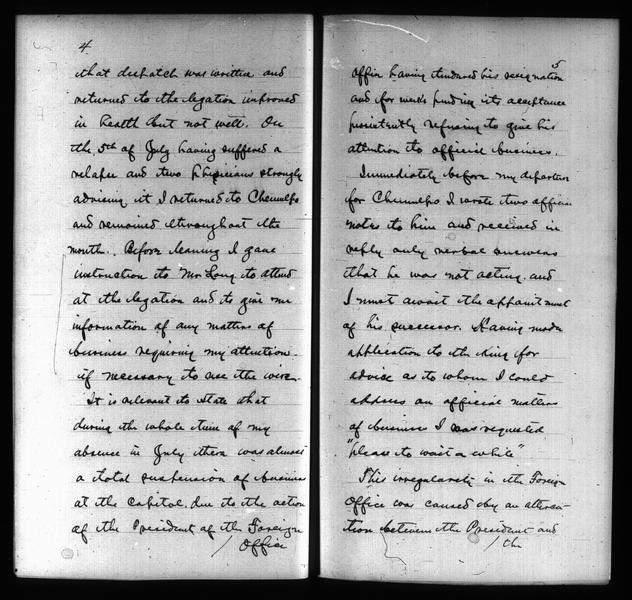 4
that despatch was written and
returned to the legation improved
in health but not well. On
the 5th of July having suffered a
relapse and two physicians strongly
advising it I returned to Chemulpo
and remained throughout the
month. Before leaving I gave
instruction to Mr Long to attend
at the legation and to give me
information of any matters of
business requiring my attention
if necessary to use the wire.
It is relevant to state that
during the whole time of my
absence in July there was almost
a total suspension of business
at the Capitol, due to the action
of the President of the Foreign
/ Office
5
Office having tendered his resignation
and for weeks pending its acceptance
persistently refusing to give his
attention to official business.
Immediately before my departure
for Chemulpo I wrote two official
notes to him and received in
reply only verbal answers
that he was not acting and
I must await the appointment
of his successor. Having made
application to the King for
advise as to whom I could
address on official matters
of business I was requested
"please to wait a while"
This irregularity in the Foreign
Office was caused by an alterca-
tion between the President and
/ the